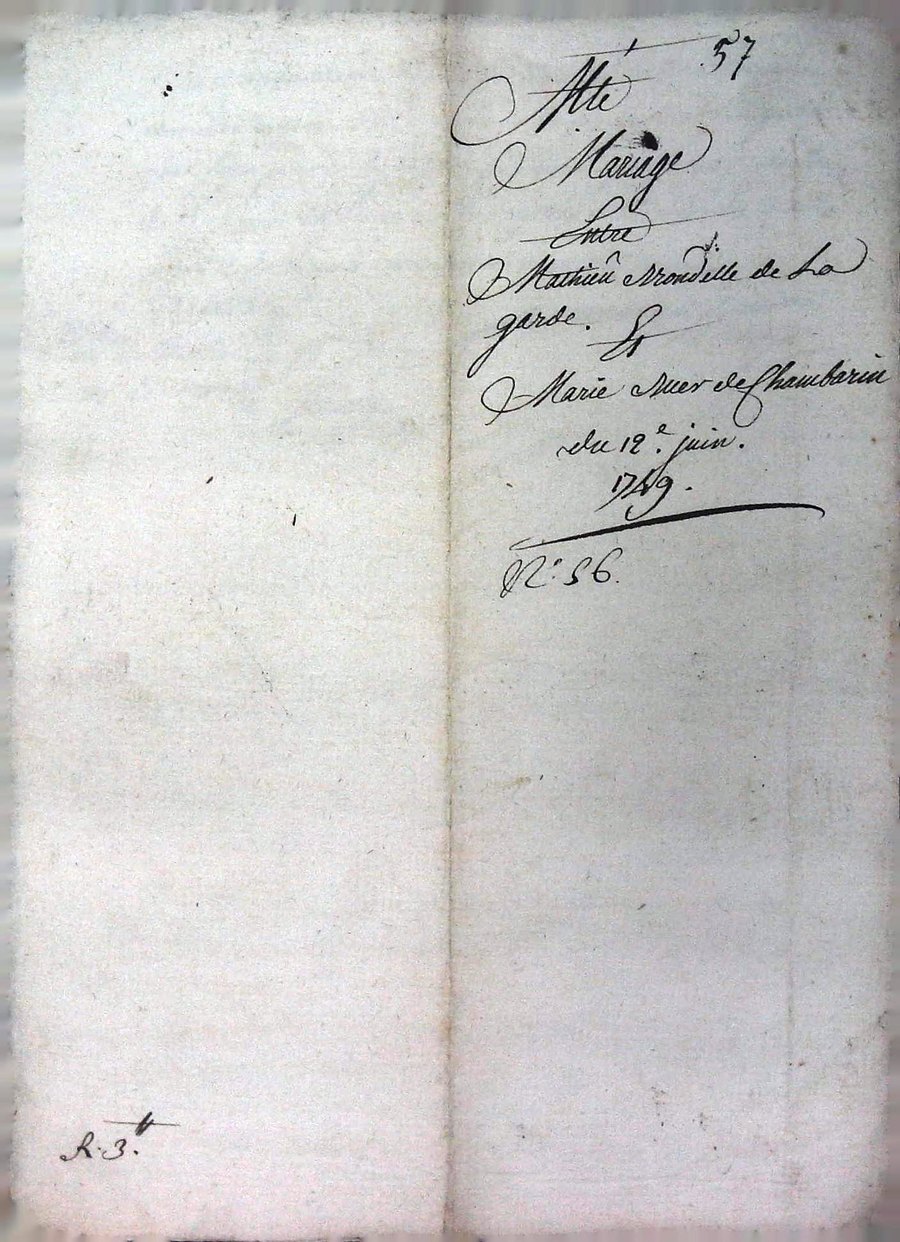 57
Atte
Mariage
Entre
Mathieu Arondelle de La
garde.
Et
Marie de Chambarin
du 12e. juin.
1749.
No. 56.
R. 3tt.